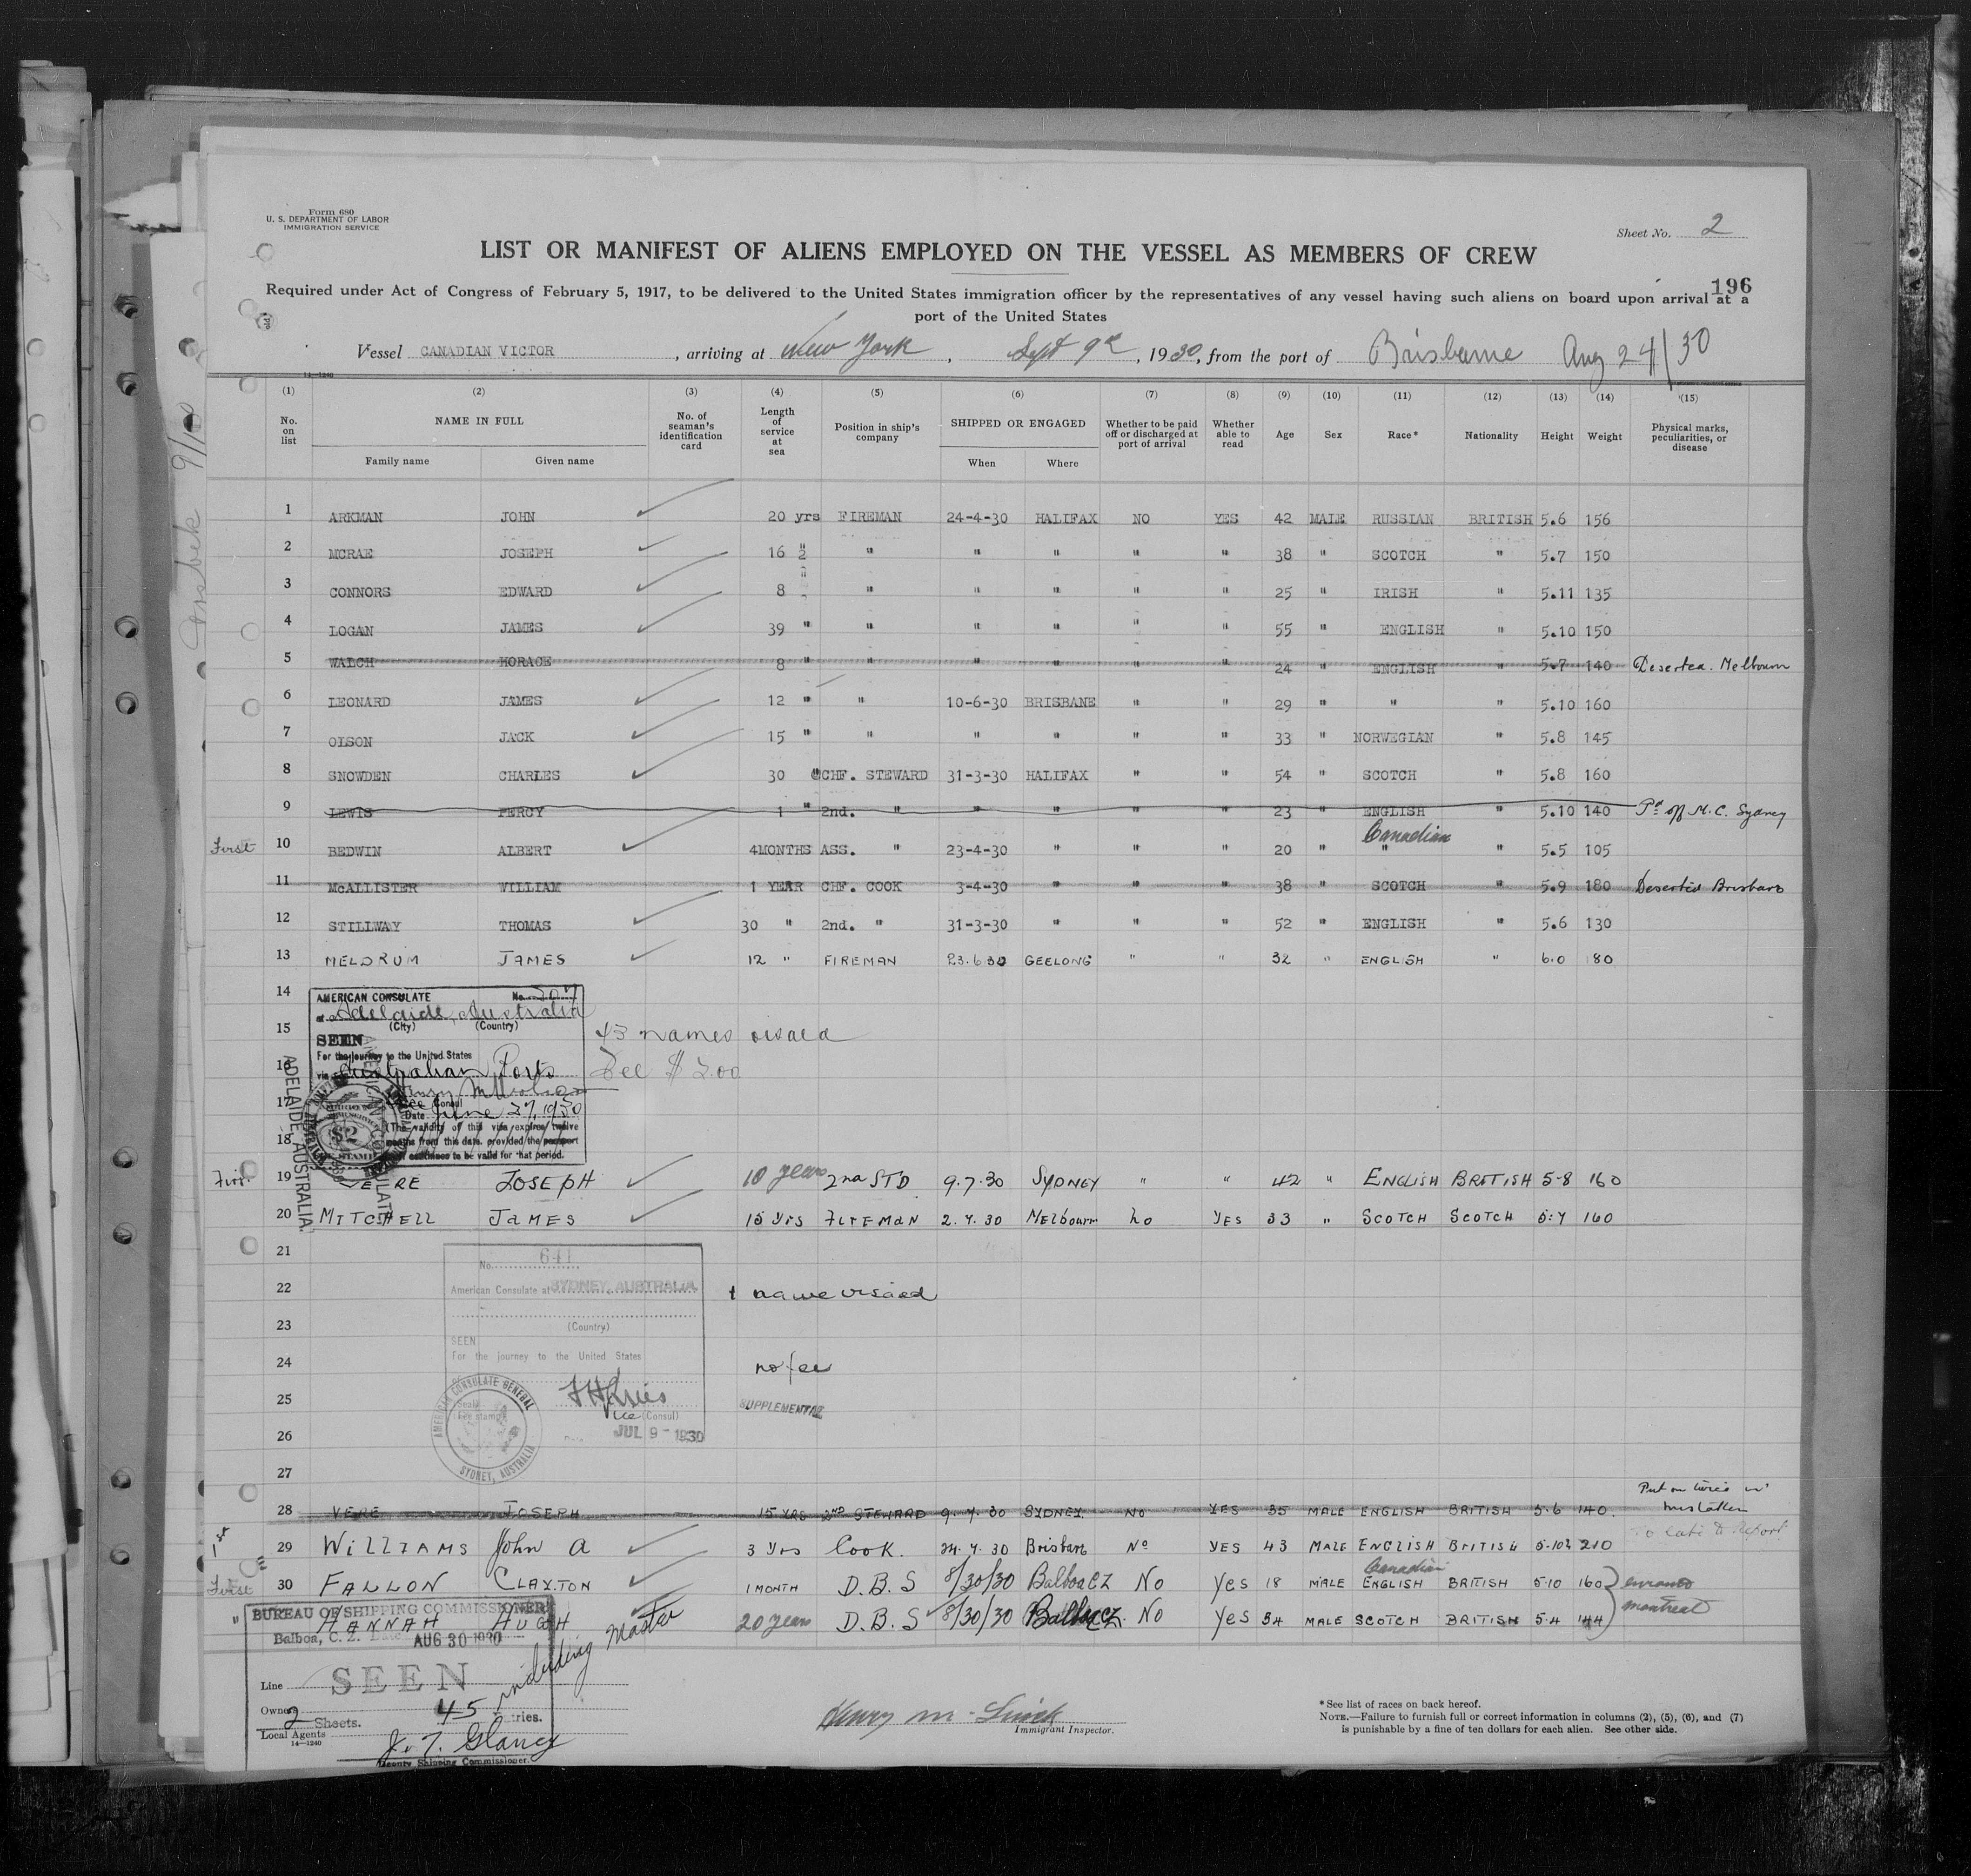 Form 680
U. S. DEPARTMENT OF LABOR
IMMIGRATION SERVICE
Sheet No. 2
LIST OR MANIFEST OF ALIENS EMPLOYED ON THE VESSEL AS MEMBERS OF CREW
196
Required under Act of Congress of February 5, 1917, to be delivered to the United States immigration officer by the representatives of any vessel having such aliens on board upon arrival at a
port of the United States
Vessel CANADIAN VICTOR, arriving at New York, Sept 9th, 1930, from the port of Brisbane Aug 24/30
14—1240
(1) (2) (3) (4) (5) (6) (7) (8) (9) (10) (11) (12) (13) (14) (15)
No. on list NAME IN FULL Family name Given name No. of seaman's identification card Length of service at sea Position in ship's company SHIPPED OR ENGAGED When Where Whether to be paid off or discharged at port of arrival Whether able to read Age Sex Race* Nationality Height Weight Physical marks, peculiarities, or disease
1 ARKMAN JOHN 20 yrs FIREMAN 24-4-30 HALIFAX NO YES 42 MALE RUSSIAN BRITISH 5.6 156
2 MCRAE JOSEPH 16 " " " " " " 38 " SCOTCH " 5.7 150
3 CONNORS EDWARD 8 " " " " " " 25 " IRISH " 5.11 135
4 LOGAN JAMES 39 " " " " " " 55 " ENGLISH " 5.10 150
5 WALCH HORACE 8 " " " " " " 24 " ENGLISH " 5.7 140 Deserted. Melbourn
6 LEONARD JAMES 12 " " 10-6-30 BRISBANE " " 29 " " " 5.10 160
7 OLSON JACK 15 " " " " " " 33 " NORWEGIAN " 5.8 145
8 SNOWDEN CHARLES 30 " CHF. STEWARD 31-3-30 HALIFAX " " 54 " SCOTCH " 5.8 160
9 LEWIS PERCY 1 " 2nd. " " " " " 23 " ENGLISH " 5.10 140 Pd off M.C. Sydney
First 10 BEDWIN ALBERT 4MONTHS ASS. " 23-4-30 " " " 20 " Canadian " " 5.5 105
11 McALLISTER WILLIAM 1 YEAR CHF. COOK 3-4-30 " " " 38 " SCOTCH " 5.9 180 Deserted Brisbane
12 STILLWAY THOMAS 30 " 2nd. " 31-3-30 " " " 52 " ENGLISH " 5.6 130
13 MELDRUM JAMES 12 " FIREMAN 23.6.30 GEELONG " " 32 " ENGLISH " 6.0 180
14
AMERICAN CONSULATE No.
at Adelaide, Australia
(City) (Country)
15
43 names visaed
SEEN
For the journey to the United States
16
via Australian Ports
Fee $2.00
17
Vice Consul
Date June 27, 1930
(The validity of this visa expires twelve
18
months from this date provided the passport
continues to be valid for that period.
ADELAIDE, AUSTRALIA.
First 19 VERE JOSEPH 10 years 2nd STD 9.7.30 SYDNEY " " 42 " ENGLISH BRITISH 5-8 160
20 MITCHELL JAMES 15 Yrs FIREMAN 2.7.30 Melbourn no YES 33 " SCOTCH SCOTCH 5:7 160
21
No. 641
22
American Consulate at SYDNEY, AUSTRALIA
1 name visaed
23
(Country)
SEEN
24
For the journey to the United States
no fee
25
Seal
Fee stamp
Vice (Consul)
SUPPLEMENTAL
JUL 9 - 1930
AMERICAN CONSULATE GENERAL
SYDNEY, AUSTRALIA
26
27
28 VERE JOSEPH 15 YRS 2ND STEWARD 9.7.30 SYDNEY. No YES 35 MALE ENGLISH BRITISH 5.6 140. Put on twice in mistake
1st 29 WILLIAMS John A 3 Yrs Cook. 24.7.30 Brisbane No YES 43 MALE ENGLISH BRITISH 5-10½ 210 To late to Report
First 30 FALLON CLAYTON 1 MONTH D.B.S 8/30/30 Balboa CZ No Yes 18 MALE Canadian ENGLISH BRITISH 5.10 160
" HANNAH HUGH 20 years D.B.S 8/30/30 Balboa CZ. No Yes 34 MALE SCOTCH BRITISH 5.4 144
enroute
Montreal
BUREAU OF SHIPPING COMMISSIONER
Balboa, C. Z. AUG 30 1930
SEEN
including Master
Line
Owners
2 Sheets. 45 Entries.
Local Agents
14—1240
J. T. Glancy
Deputy Shipping Commissioner.
Immigrant Inspector.
*See list of races on back hereof.
NOTE.—Failure to furnish full or correct information in columns (2), (5), (6), and (7)
is punishable by a fine of ten dollars for each alien. See other side.